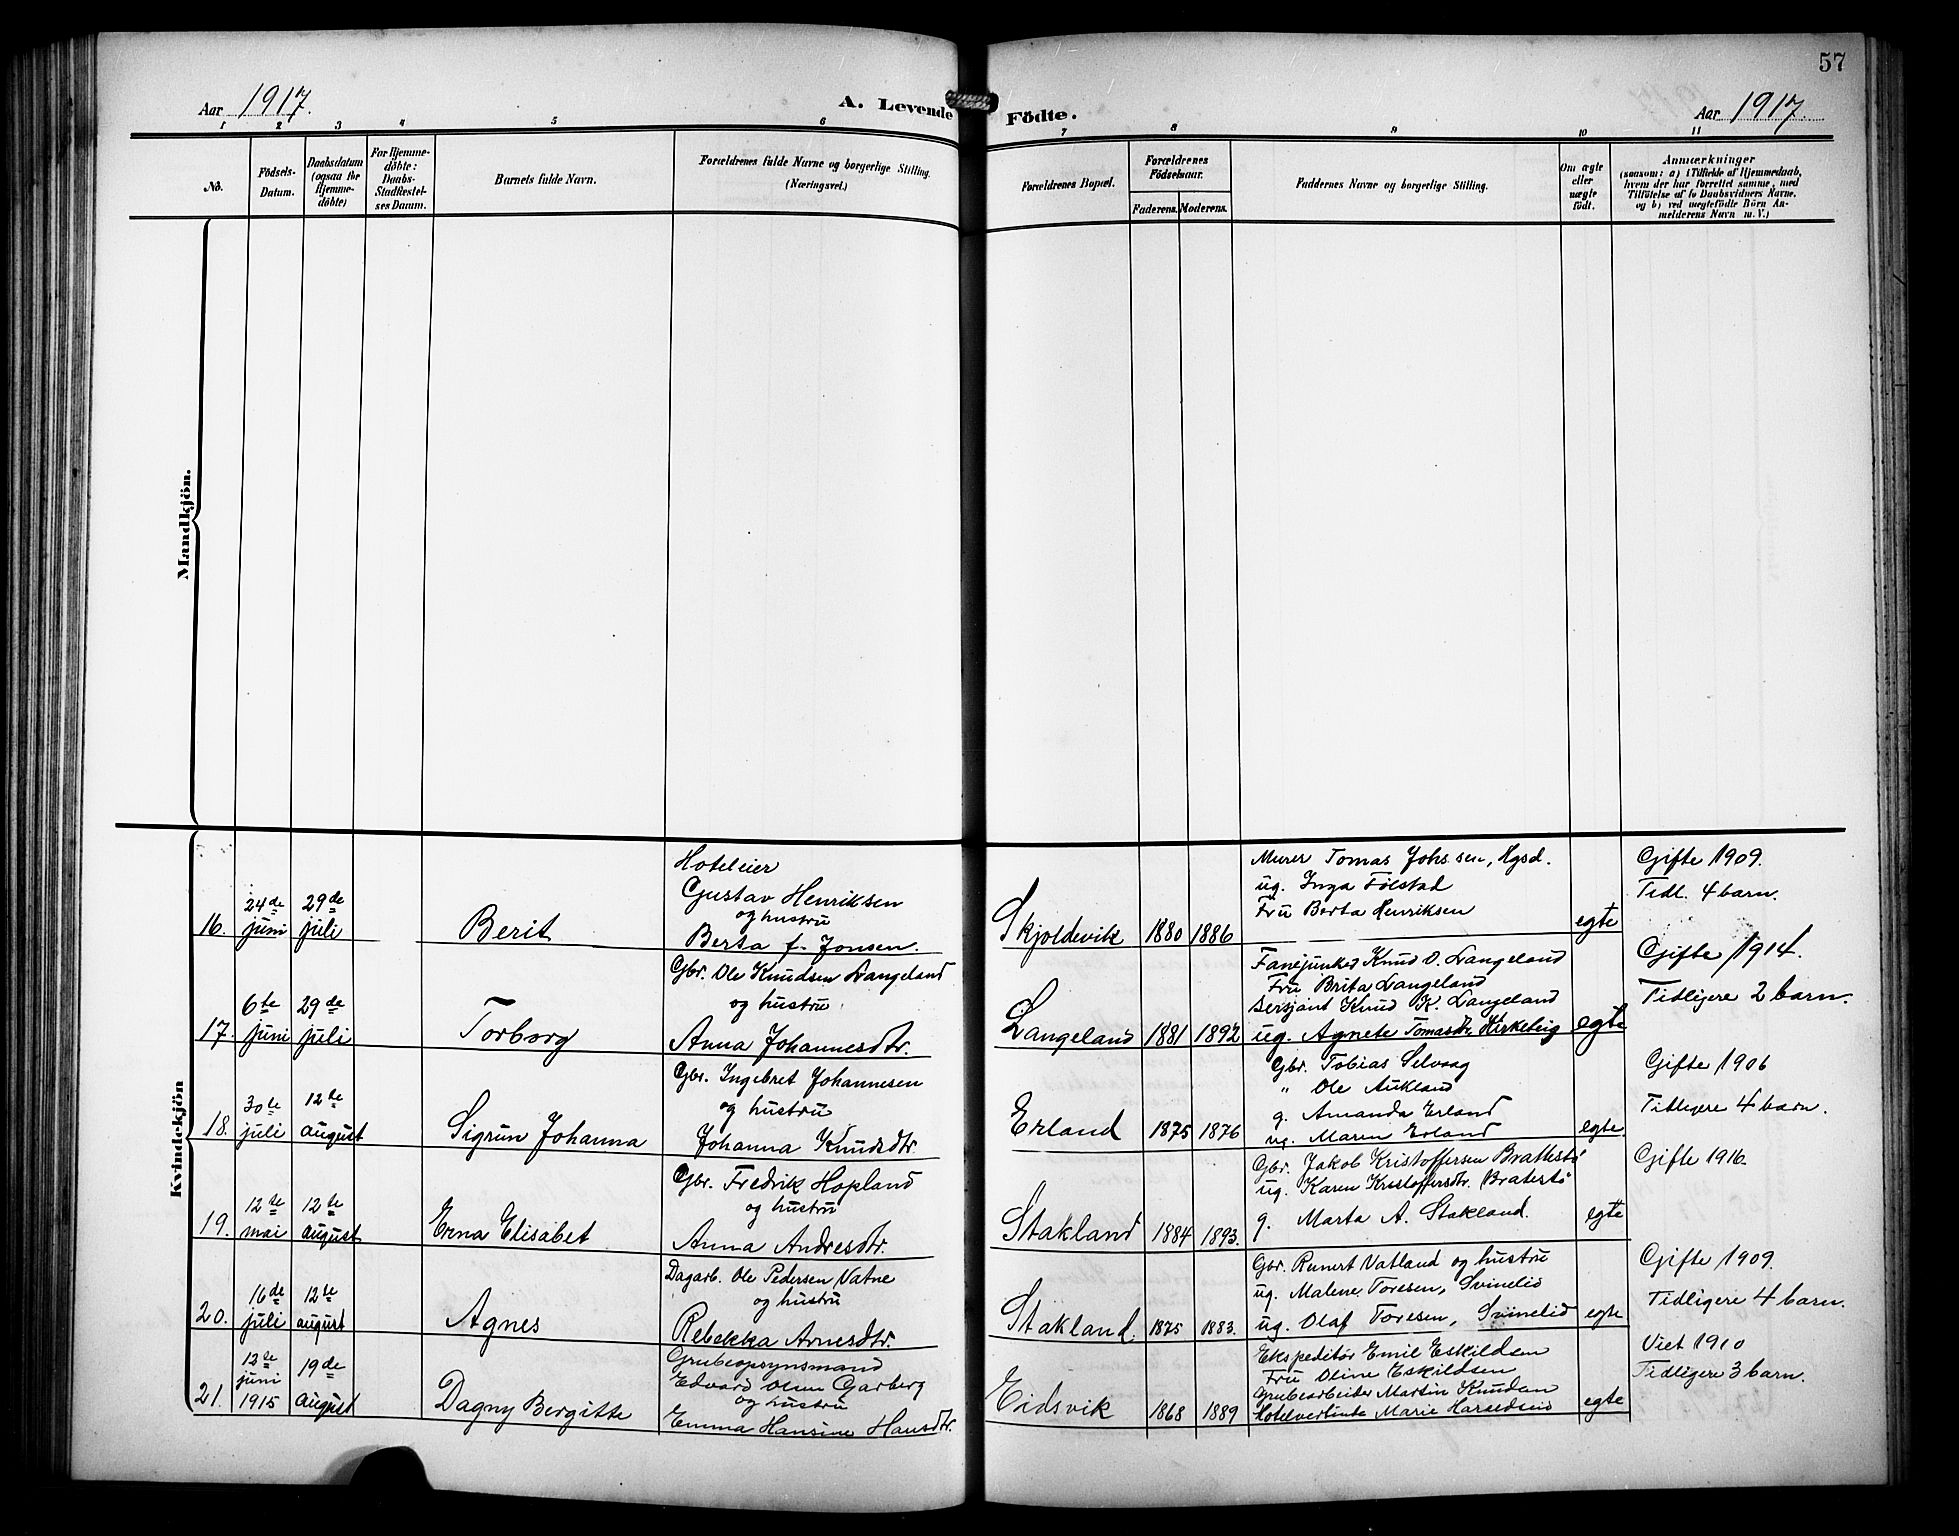 57
Aar 1917.
A. Levende Födte.
Aar 1917.
1 2 3 4 5 6 7 8 9 10 11
No.
Födsels-
Datum.
Daabsdatum
(ogsaa for
Hjemme-
döbte)
For Hjemme-
döbte:
Daabs-
Stadfæstel-
ses Datum.
Barnets fulde Navn.
Forældrenes fulde Navne og borgerlige Stilling.
(Næringsvei.)
Forældrenes Bopæl.
Forældrenes
Födselsaar.
Faderens. Moderens.
Faddernes Navne og borgerlige Stilling.
Om ægte
eller
uægte
födt.
Anmærkninger
(saasom: a) i Tilfælde af Hjemmedaab,
hvem der har forrettet samme, med
Tilföielse af to Daabsvidners Navne,
og b) ved uægtefödte Börn An-
melderens Navn m. V.)
Mandkjön.
Kvindekjön
16.
24de
juni
29de
juli
Berit
Hoteleier
Gustav Henriksen
og hustru
Berta f. Jonsen.
Skjoldevik
1880 1886
Murer Tomas Johs.sen, Hgsd.
ug. Inga Fölstad
Fru Berta Henriksen
egte
Gifte 1909.
Tidl. 4 barn.
17.
6te
juni
29de
juli
Torborg
Gbr. Ole Knudsen Langeland
og hustru
Anna Johannesdtr.
Langeland
1881 1892
Fanejunker Knud O. Langeland
Fru Brita Langeland
Sersjant Knud K. Langeland
ug. Agnete Tomasdtr.
egte
Gifte 1914.
Tidligere 2 barn.
18.
30te
juli
12te
august
Sigrun Johanna
Gbr. Ingebret Johannesen
og hustru
Johanna Knudsdtr.
Erland
1875 1876
Gbr. Tobias Selvaag
" Ole Aukland
g. Amanda Erland
ug. Maren Erland
egte.
Gifte 1906
Tidligere 4 barn.
19.
12te
mai
12te
august
Erna Elisabet
Gbr. Fredrik Hopland
og hustru
Anna Andresdtr.
Stakland
1884 1893.
Gbr. Jakob Kristoffersen
ug. Karen Kristoffersdtr.
g. Marta A. Stakland.
egte
Gifte 1916.
20.
16de
juli
12te
august
Agnes
Dagarb. Ole Pedersen Vatne
og hustru
Rebekka Arnesdtr.
Stakland.
1875 1883.
Gbr. Runert Vatland og hustru
ug. Malene Toresen, Svinelid
ug. Olaf Toresen, Svinelid
egte
Gifte 1909.
Tidligere 4 barn.
21.
12te
juni
1915
19de
august
Dagny Bergitte
Grubeopsynsmand
Edvard Olsen Garberg
og hustru
Emma Hansine Hansdtr.
Eidsvik
1868 1889
Ekspeditör Emil Eskildsen
Fru Oline Eskildsen
Grubearbeider Martin Knudsen
Hotelvertinde Marie
egte
Viet 1910
Tidligere 3 barn.